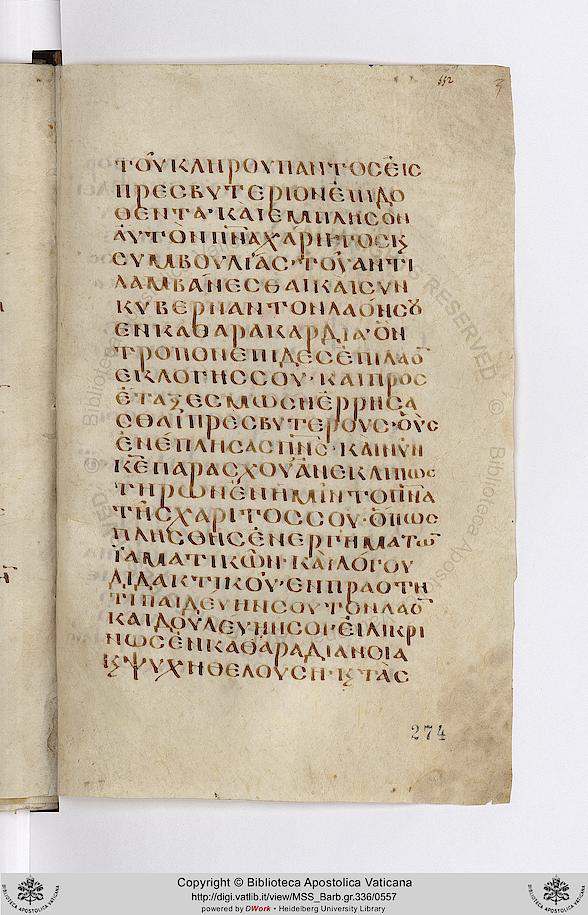 552
ΤΟΥ ΚΛΗΡΟΥ ΠΑΝΤΟΣ ΕΙΣ
ΠΡΕΣΒΥΤΕΡΙΟΝ ΕΠΙΔΟ
ΘΕΝΤΑ· ΚΑΙ ΕΜΠΛΗΣΟΝ
ΑΥΤΟΝ ΠΝΑ ΧΑΡΙΤΟΣ Κ
ΣΥΜΒΟΥΛΙΑΣ· ΤΟΥ ΑΝΤΙ
ΛΑΜΒΑΝΕΣΘΑΙ ΚΑΙ ΣΥΝ
ΚΥΒΕΡΝΑΝ ΤΟΝ ΛΑΟΝ ΣΟΥ
ΕΝ ΚΑΘΑΡΑ ΚΑΡΔΙΑ· ΟΝ
ΤΡΟΠΟΝ ΕΠΙΔΕΣ ΕΠΙ ΛΑΟ̅
ΕΚΛΟΓΗΣ ΣΟΥ· ΚΑΙ ΠΡΟΣ
ΕΤΑΞΕΣ ΜΩΣΗ ΕΡΡΗΣΑ
ΣΘΑΙ ΠΡΕΣΒΥΤΕΡΟΥΣ· ΟΥΣ
ΕΝΕΠΛΗΣΑΣ ΠΝΣ· ΚΑΙ ΝΥΝ
ΚΕ ΠΑΡΑΣΧΟΥ ΑΝΕΚΛΙΠΩΣ
ΤΗΡΩΝ ΕΝ ΗΜΙΝ ΤΟ ΠΝΑ
ΤΗΣ ΧΑΡΙΤΟΣ ΣΟΥ· ΟΠΩΣ
ΠΛΗΣΘΗΣ ΕΝΕΡΓΗΜΑΤΩ̅
ΙΑΜΑΤΙΚΩΝ· ΚΑΙ ΛΟΓΟΥ
ΔΙΔΑΚΤΙΚΟΥ· ΕΝ ΠΡΑΟΤΗ
ΤΙ ΠΑΙΔΕΥΗ ΣΟΥ ΤΟΝ ΛΑΟ̅
ΚΑΙ ΔΟΥΛΕΥΗ ΣΟΙ· ΕΙΛΙΚΡΙ
ΝΩΣ ΕΝ ΚΑΘΑΡΑ ΔΙΑΝΟΙΑ
Κ ΨΥΧΗ ΘΕΛΟΥΣΗ· Κ ΤΑΣ
274
Copyright © Biblioteca Apostolica Vaticana
http://digi.vatlib.it/view/MSS_Barb.gr.336/0557
powered by DWork • Heidelberg University Library